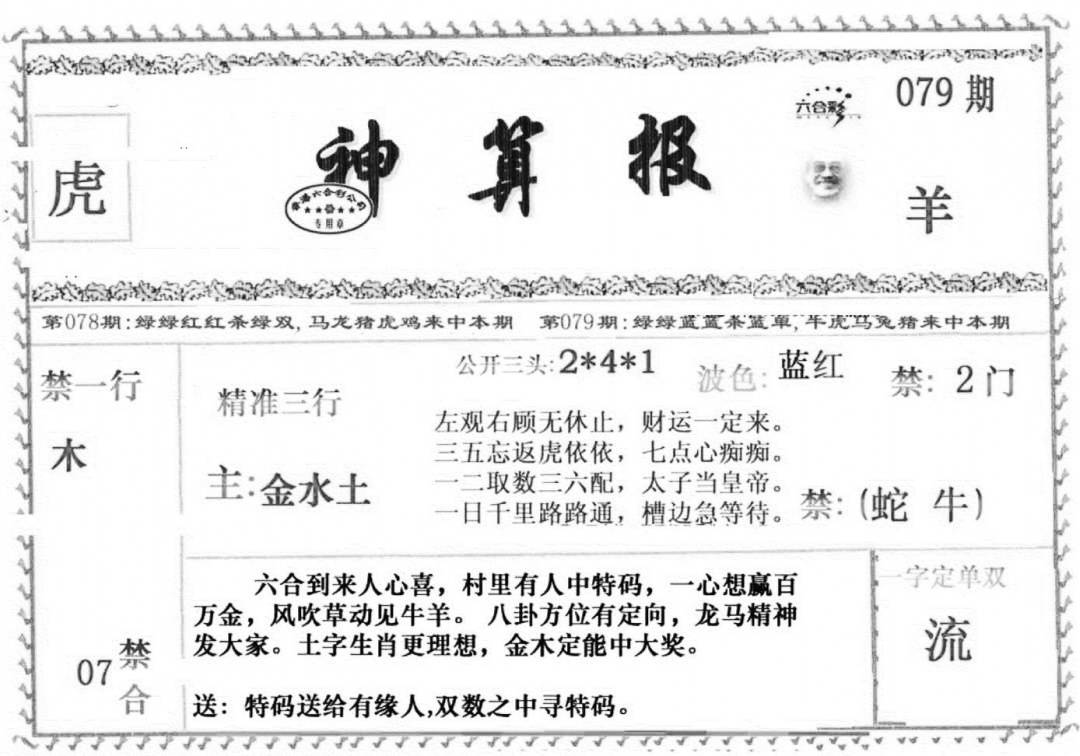 079期
六合彩
虎
神算报
香港六合彩公司
专用章
羊
第078期:绿绿红红杀绿双,马龙猪虎鸡来中本期 第079期:绿绿蓝蓝杀蓝单,牛虎马兔猪来中本期
禁一行
木
精准三行
主:金水土
公开三头:2*4*1
波色:蓝红
禁:2门
左观右顾无休止，财运一定来。
三五忘返虎依依，七点心痴痴。
一二取数三六配，太子当皇帝。
一日千里路路通，槽边急等待。
禁:(蛇 牛)
07禁合
六合到来人心喜，村里有人中特码，一心想赢百
万金，风吹草动见牛羊。八卦方位有定向，龙马精神
发大家。土字生肖更理想，金木定能中大奖。
送：特码送给有缘人,双数之中寻特码。
一字定单双
流